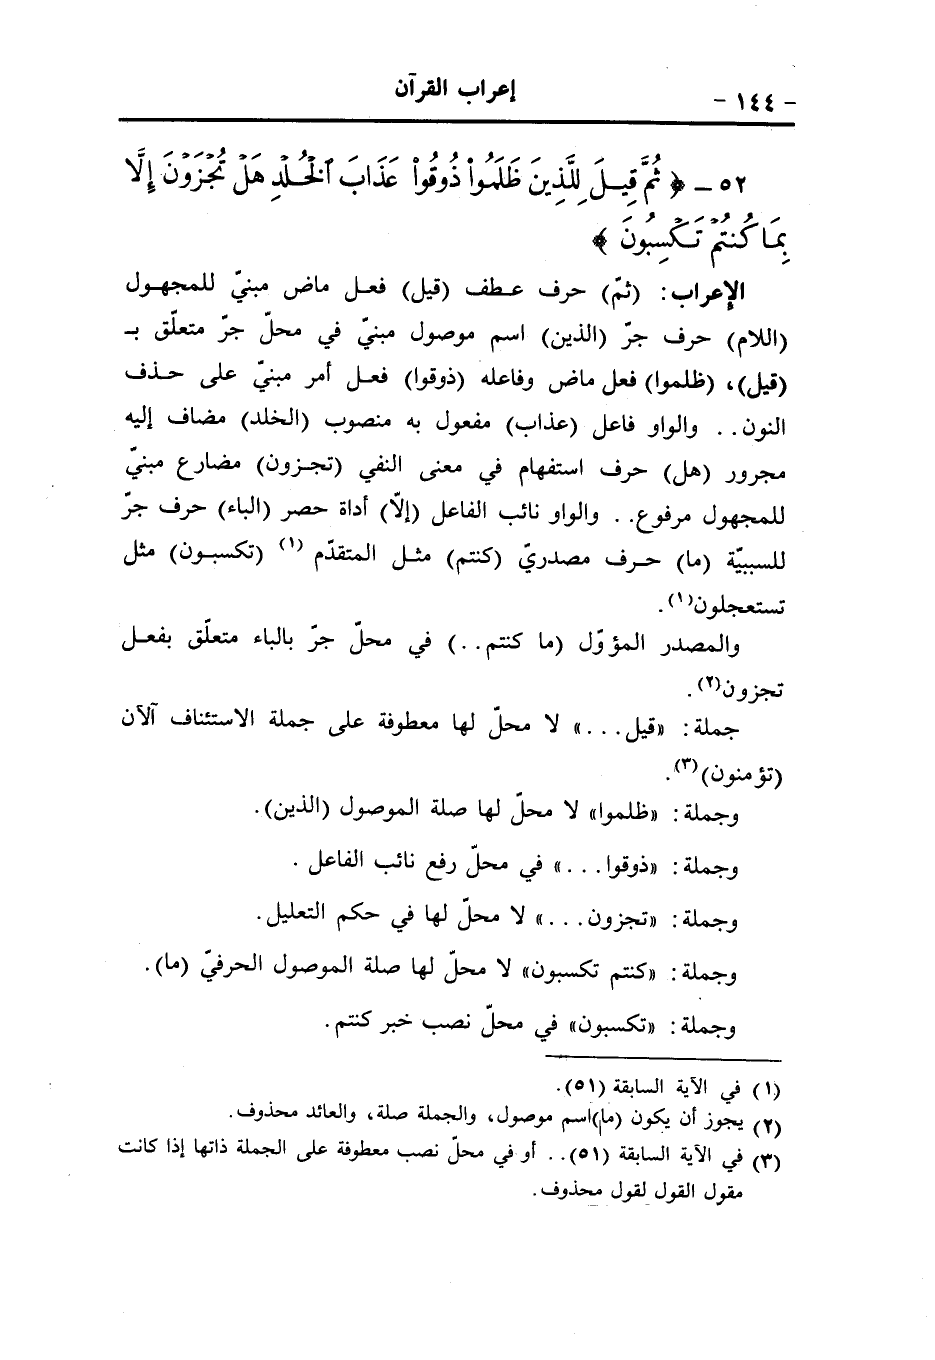 - ١٤٤ -
إعراب القرآن
٥٢ ـ ﴿ ثُمَّ قِيلَ لِلَّذِينَ ظَلَمُواْ ذُوقُواْ عَذَابَ ٱلْخُلْدِ هَلْ تُجْزَوْنَ إِلَّا
بِمَا كُنتُمْ تَكْسِبُونَ ﴾
الإعراب: (ثمّ) حرف عطف (قيل) فعل ماض مبنيّ للمجهول
(اللام) حرف جرّ (الذين) اسم موصول مبنيّ في محلّ جرّ متعلّق بـ
(قيل)، (ظلموا) فعل ماض وفاعله (ذوقوا) فعل أمر مبنيّ على حذف
النون.. والواو فاعل (عذاب) مفعول به منصوب (الخلد) مضاف إليه
مجرور (هل) حرف استفهام في معنى النفي (تجزون) مضارع مبنيّ
للمجهول مرفوع.. والواو نائب الفاعل (إلاّ) أداة حصر (الباء) حرف جرّ
للسببيّة (ما) حرف مصدريّ (كنتم) مثل المتقدّم (١) (تكسبون) مثل
تستعجلون(١).
والمصدر المؤوّل (ما كنتم..) في محلّ جرّ بالباء متعلّق بفعل
تجزون(٢).
جملة: «قيل...» لا محلّ لها معطوفة على جملة الاستئناف آلآن
(تؤمنون)(٣).
وجملة: «ظلموا» لا محلّ لها صلة الموصول (الذين).
وجملة: «ذوقوا...» في محلّ رفع نائب الفاعل.
وجملة: «تجزون...» لا محلّ لها في حكم التعليل.
وجملة: «كنتم تكسبون» لا محلّ لها صلة الموصول الحرفيّ (ما).
وجملة: «تكسبون» في محلّ نصب خبر كنتم.
(١) في الآية السابقة (٥١).
(٢) يجوز أن يكون (ما)اسم موصول، والجملة صلة، والعائد محذوف.
(٣) في الآية السابقة (٥١).. أو في محلّ نصب معطوفة على الجملة ذاتها إذا كانت
مقول القول لقول محذوف.